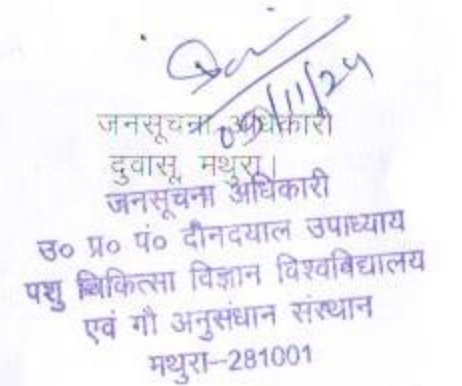 09/11/24
जनसूचना अधिकारी
दुवासू, मथुरा।
जनसूचना अधिकारी
उ० प्र० पं० दीनदयाल उपाध्याय
पशु चिकित्सा विज्ञान विश्वविद्यालय
एवं गौ अनुसंधान संस्थान
मथुरा--281001